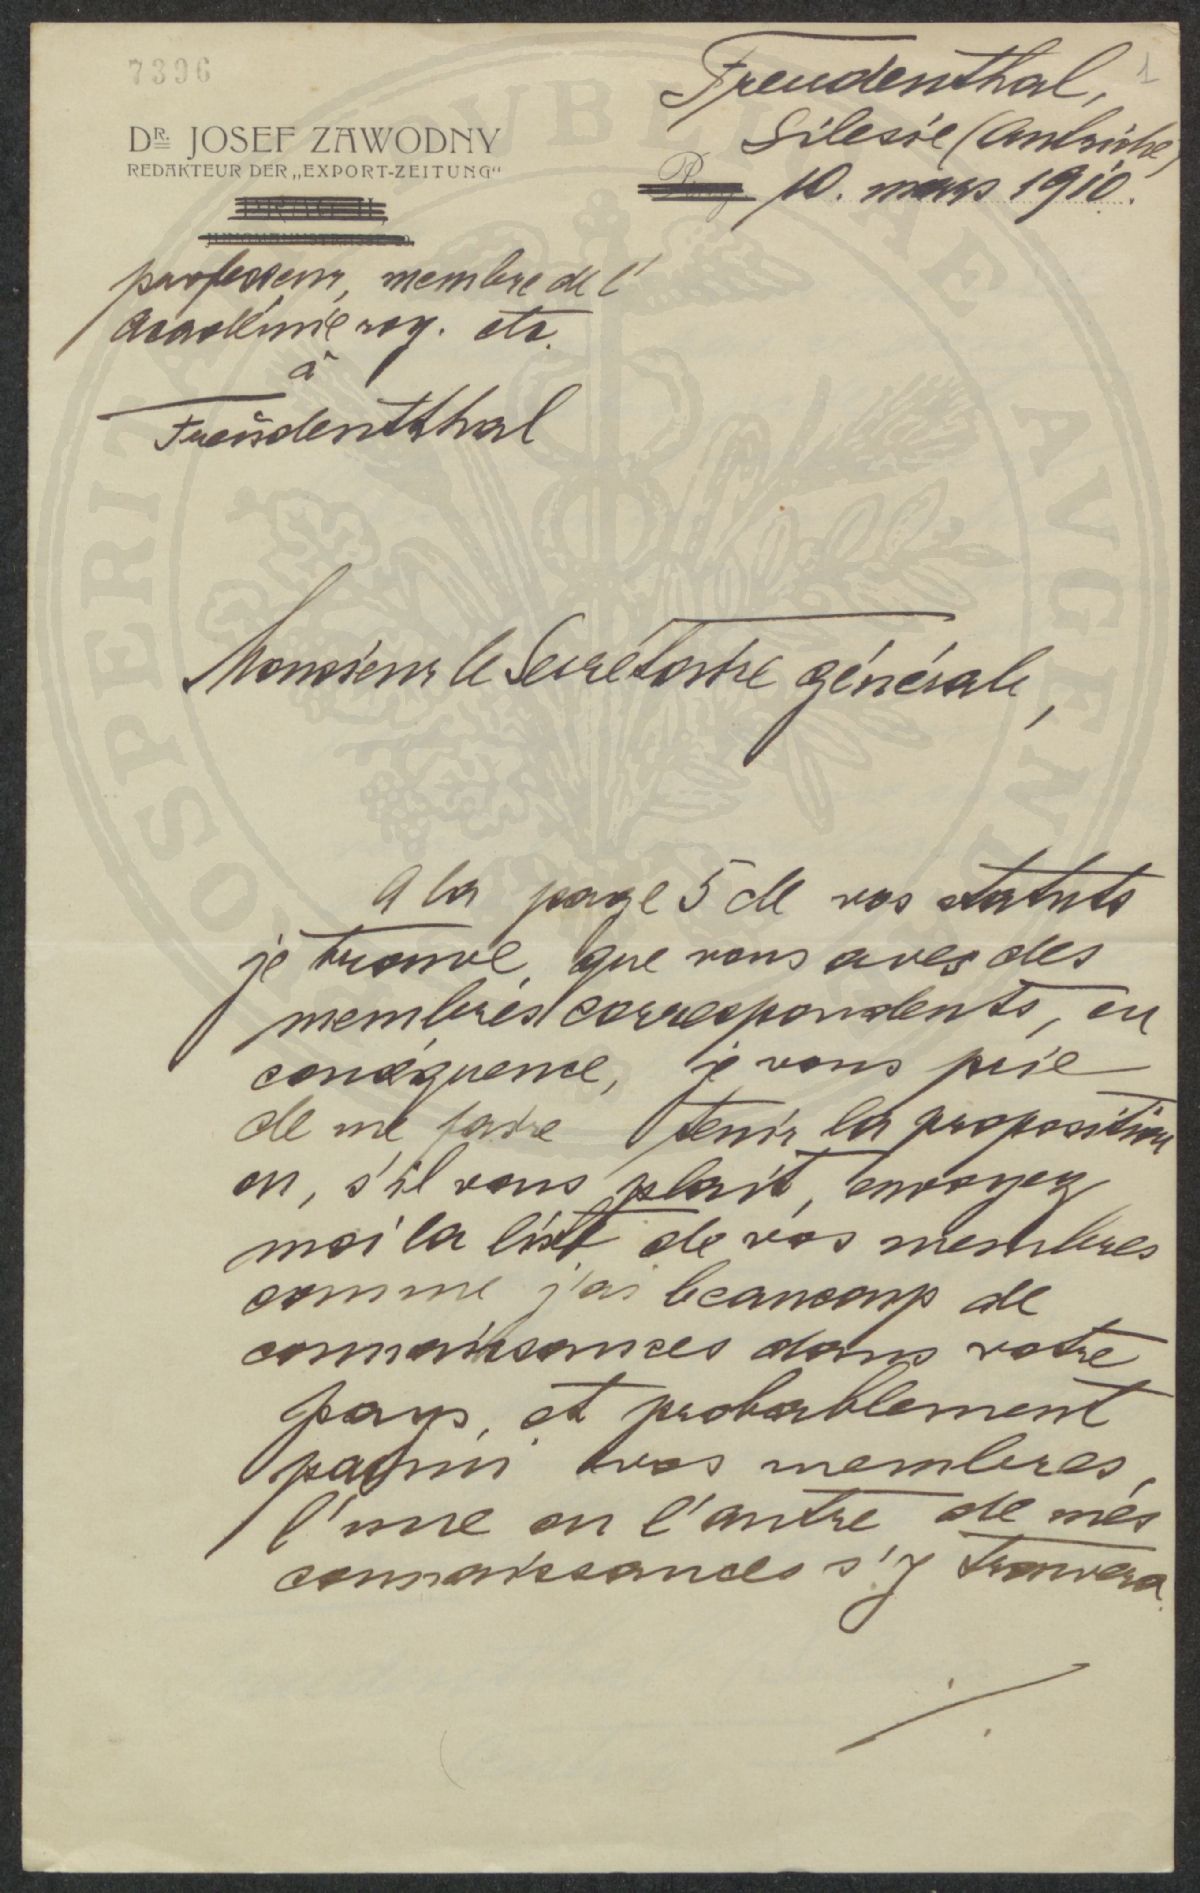 7396
1
Freudenthal,
Silesie (Autriche)
10. mars 1910.
DR. JOSEF ZAWODNY
REDAKTEUR DER „EXPORT-ZEITUNG"
professeur, membre de l'
Académie roy. etc.
à
Freudenthal
Monsieur le Secrétaire générale,
A la page 5 de vos statuts
je trouve, que vous avez des
membres correspondents, en
conséquence, je vous prie
de me faire tenir la proposition
ou, s'il vous plaît, envoyez
moi la liste de vos membres
comme j'ai beaucoup de
connaissances dans votre
pays, et probablement
parmi vos membres,
l'une ou l'autre de mes
connaissances s'y trouvera.